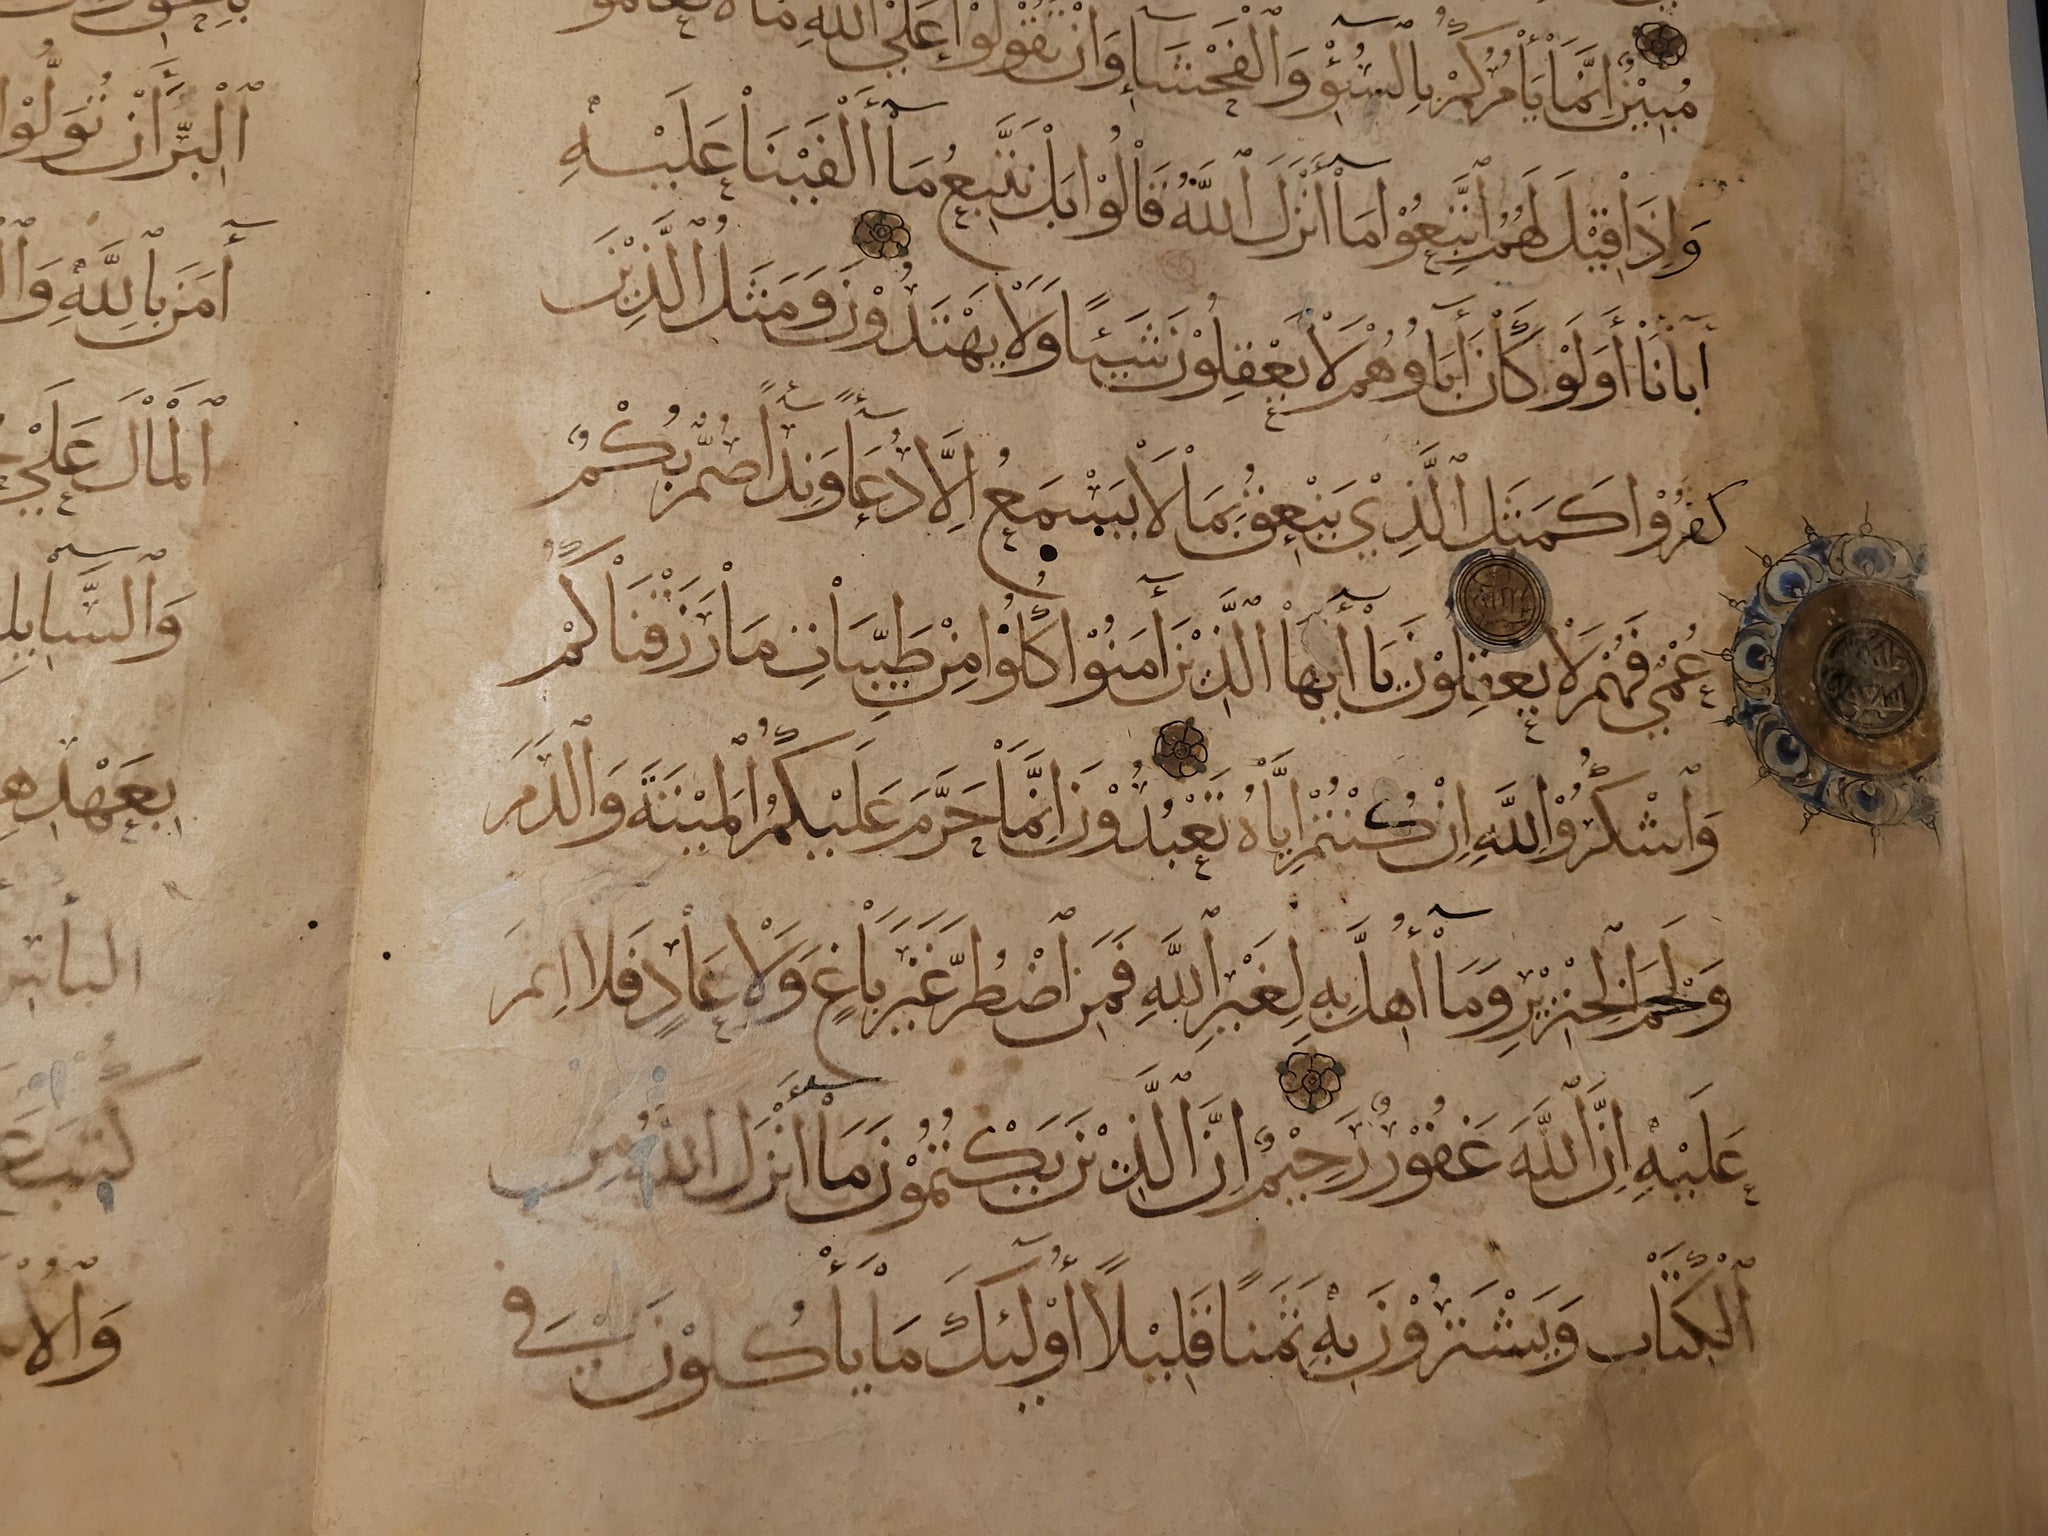 مُبِيْنٌ اِنَّمَا يَأْمُرُكُمْ بِالسُّوْءِ وَالْفَحْشَاءِ وَاَنْ تَقُوْلُوْا عَلَى اللّٰهِ مَا لَا تَعْلَمُوْ
وَاِذَا قِيْلَ لَهُمُ اتَّبِعُوْا مَا أَنْزَلَ اللّٰهُ قَالُوْا بَلْ نَتَّبِعُ مَا أَلْفَيْنَا عَلَيْهِ
آبَانَا أَوَلَوْ كَانَ أَبَاوُهُمْ لَا يَعْقِلُوْنَ شَيْئًا وَلَا يَهْتَدُوْنَ وَمَثَلُ الَّذِيْنَ
كَفَرُوْا كَمَثَلِ الَّذِيْ يَنْعِقُ بِمَا لَا يَسْمَعُ اِلَّا دُعَاءً وَنِدَاءً صُمٌّ بُكْمٌ
عُمْيٌ فَهُمْ لَا يَعْقِلُوْنَ يَا أَيُّهَا الَّذِيْنَ أَمَنُوْا كُلُوْا مِنْ طَيِّبَاتِ مَا رَزَقْنَاكُمْ
وَاشْكُرُوْا لِلّٰهِ اِنْ كُنْتُمْ اِيَّاهُ تَعْبُدُوْنَ اِنَّمَا حَرَّمَ عَلَيْكُمُ الْمَيْتَةَ وَالدَّمَ
وَلَحْمَ الْخِنْزِيْرِ وَمَا أُهِلَّ بِهِ لِغَيْرِ اللّٰهِ فَمَنِ اضْطُرَّ غَيْرَ بَاغٍ وَلَا عَادٍ فَلَا اِثْمَ
عَلَيْهِ اِنَّ اللّٰهَ غَفُوْرٌ رَحِيْمٌ اِنَّ الَّذِيْنَ يَكْتُمُوْنَ مَا أَنْزَلَ اللّٰهُ مِنَ
الْكِتَابِ وَيَشْتَرُوْنَ بِهِ ثَمَنًا قَلِيْلًا أُوْلَئِكَ مَا يَأْكُلُوْنَ فِي
الْبِرَّ أَنْ تُوَلُّوْا
أَمَنَ بِاللّٰهِ
الْمَالَ عَلَى
وَالسَّايِلِ
بِعَهْدِهِ
كُتِبَ